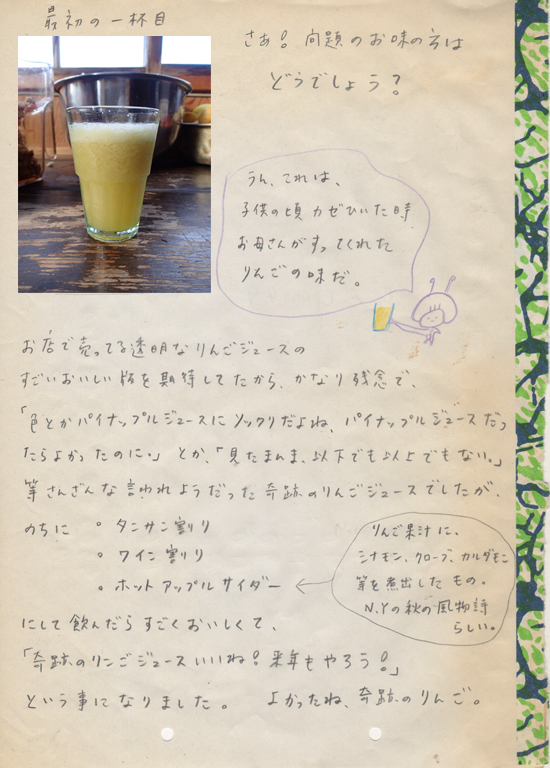 最初の一杯目
さあ！問題のお味の方は
どうでしょう？
うん、これは、
子供の頃カゼひいた時
お母さんがすってくれた
りんごの味だ。
お店で売ってる透明なりんごジュースの
すごいおいしい版を期待してたから、かなり残念で、
「色とかパイナップルジュースにソックリだよね、パイナップルジュースだっ
たらよかったのに。」とか、「見たまんま、以下でも以上でもない。」
等さんざんな言われようだった奇跡のりんごジュースでしたが、
のちに
• タンサン割り
• ワイン割り
• ホットアップルサイダー
りんご果汁に、
シナモン、クローブ、カルダモン
等を煮出したもの。
N.Yの秋の風物詩
らしい。
にして飲んだらすごくおいしくて、
「奇跡のリンごジュースいいね！来年もやろう！」
という事になりました。 よかったね、奇跡のりんご。